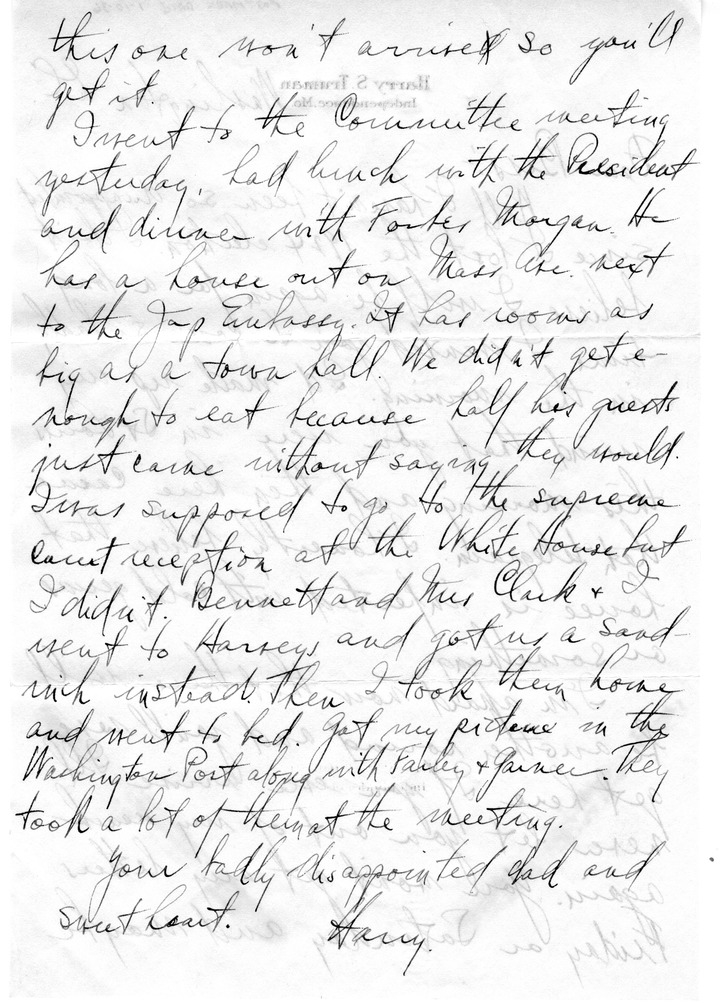 this one won't arrive so you'll
get it.
I went to the Committee meeting
yesterday, had lunch with the President
and dinner with Forbes Morgan. He
has a house out on Mass Ave. next
to the Jap Embassy. It has rooms as
big as a town hall. We didn't get e-
nough to eat because half his guests
just came without saying they would.
I was supposed to go to the supreme
court reception at the White House but
I didn't. Bennett and Mrs Clark & I
went to Harveys and got us a sand-
wich instead. Then I took them home
and went to bed. Got my picture in the
Washington Post along with Farley & Garner. They
took a lot of them at the meeting.
Your badly disappointed dad and
sweetheart.
Harry.
Harry S Truman
Independence, Mo.